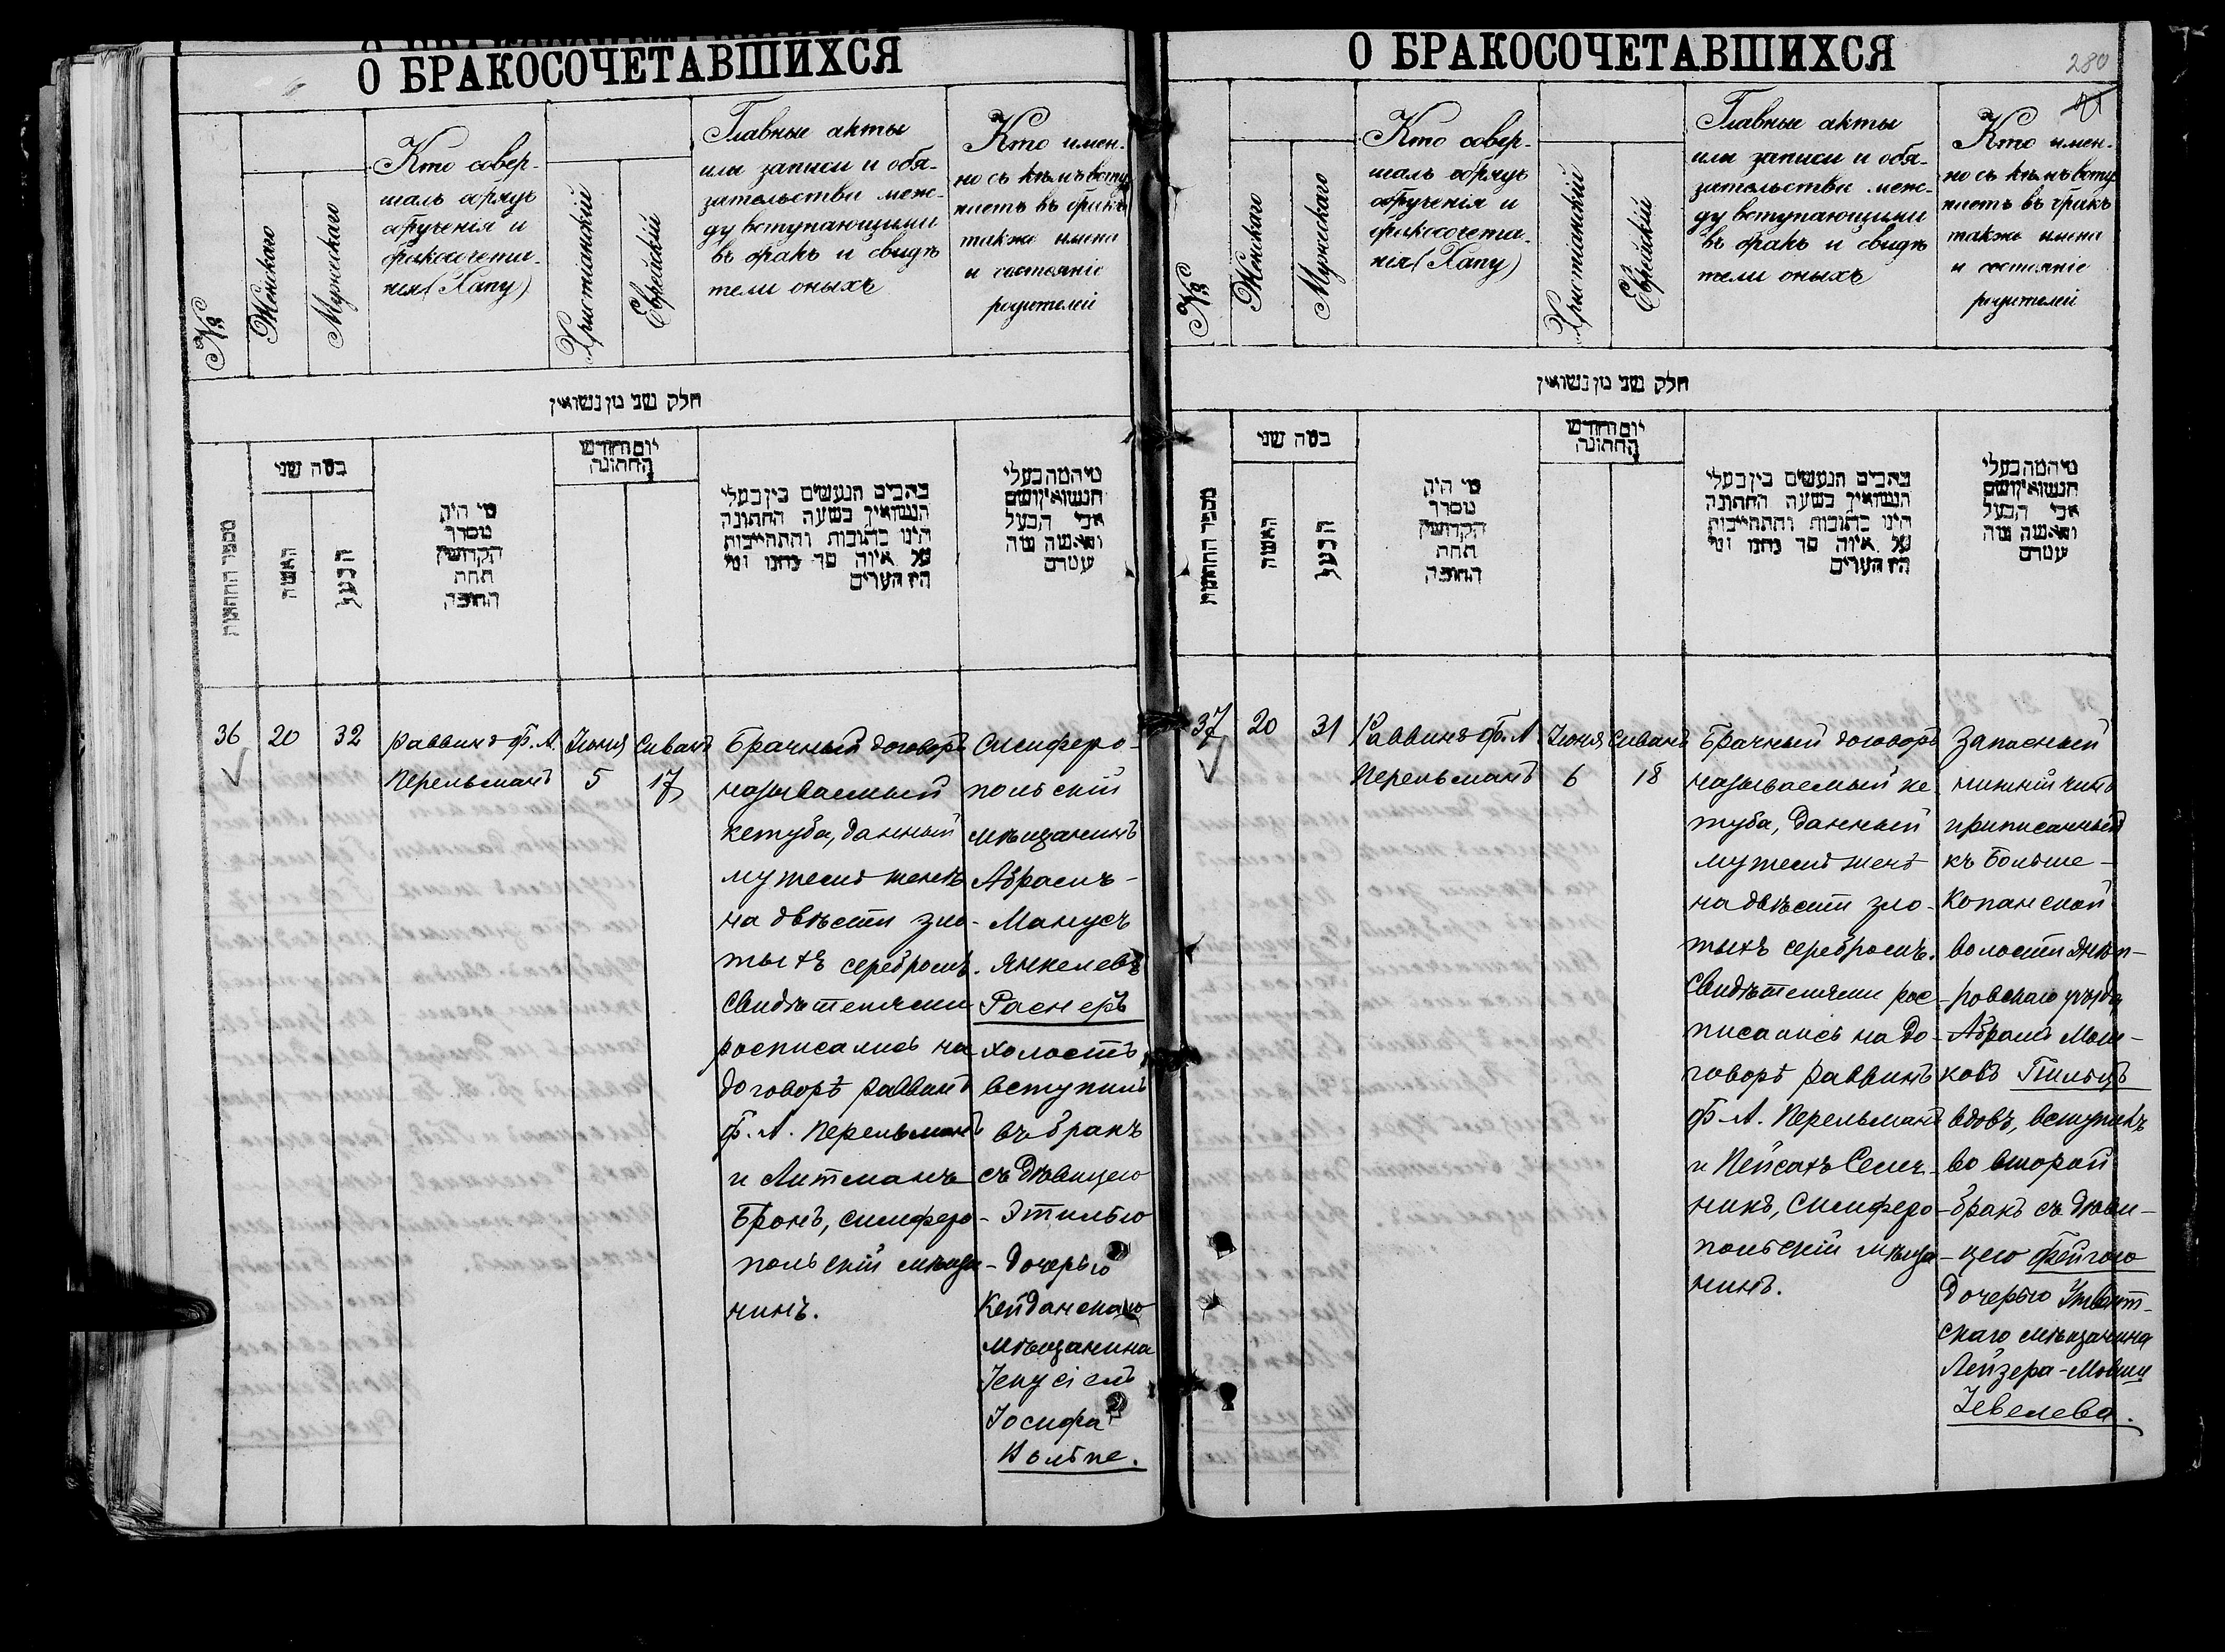 О БРАКОСОЧЕТАВШИХСЯ
№
Женскаго
Мужескаго
Кто совер-
шалъ обрядъ
обрученія и
бракосочета-
нія (Хапу)
Христіанскій
Еврейскій
Главные акты
или записи и обя-
зательства меж-
ду вступающими
въ бракъ и свидѣ
тели оныхъ
Кто имен-
но съ кѣмъ всту
паетъ въ бракъ
также имена
и состояніе
родителей
חלק שני מן נשואין
מספר החתונות
כמה שני
האשה
הבעל
מי היה
מסדר
הקדושין
תחת
החופה
יום וחודש
החתונה
כתבים הנעשים בין בעלי
הנשואין בשעה החתונה
היינו כתובות והתחייבות
על איזה סך נתנו ומי
הם הערים
מי המה בעלי
הנשואין ושם
אבי הבעל
והאשה ומה
עטרם
36
20
32
Раввинъ Ф. А.
Перельманъ
Іюня
5
Сиванъ
17
Брачный договоръ
называемый
кетуба, данный
мужемъ женѣ
на двѣсти зло-
тыхъ серебромъ.
Свидѣтелями
росписались на
договорѣ раввинъ
Ф. А. Перельманъ
и Литманъ
Бронъ, симферо-
польскій мѣща-
нинъ.
Симферо-
польскій
мѣщанинъ
Абрамъ-
Манусъ
Янкелевъ
Раснеръ
холостъ
вступилъ
въ бракъ
съ дѣвицею
Этилью
дочерью
Кейданскаго
мѣщанина
Іекусіель
Іосифа
Вольпе.
О БРАКОСОЧЕТАВШИХСЯ
280
№
Женскаго
Мужескаго
Кто совер-
шалъ обрядъ
обрученія и
бракосочета-
нія (Хапу)
Христіанскій
Еврейскій
Главные акты
или записи и обя-
зательства меж-
ду вступающими
въ бракъ и свидѣ
тели оныхъ
Кто имен-
но съ кѣмъ всту
паетъ въ бракъ
также имена
и состояніе
родителей
חלק שני מן נשואין
מספר החתונות
כמה שני
האשה
הבעל
מי היה
מסדר
הקדושין
תחת
החופה
יום וחודש
החתונה
כתבים הנעשים בין בעלי
הנשואין בשעה החתונה
היינו כתובות והתחייבות
על איזה סך נתנו ומי
הם הערים
מי המה בעלי
הנשואין ושם
אבי הבעל
והאשה ומה
עטרם
37
20
31
Раввинъ Ф. А.
Перельманъ
Іюня
6
Сиванъ
18
Брачный договоръ
называемый ке-
туба, данный
мужемъ женѣ
на двѣсти зло-
тыхъ серебромъ.
Свидѣтелями рос-
писались на до-
говорѣ раввинъ
Ф. А. Перельманъ
и Пейсахъ Семе-
никъ, Симферо-
польскій мѣща-
нинъ.
Запасный
нижній чинъ
приписанный
къ Больше-
Копанской
волости Днѣп-
ровскаго уѣзда
Абрамъ Мош-
ковъ Гильцъ
вдовъ, вступилъ
во второй
бракъ съ дѣви-
цею Фейгою
дочерью
скаго мѣщанина
Лейзера-Мовши
Іевелева.